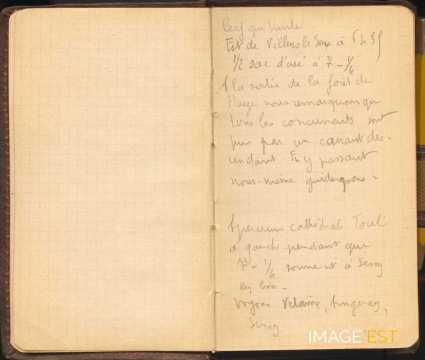 Cerf qui saute
Est de Villers le Sec à 6 h 55
1/2 sac d'usé à 7 - 1/4
A la sortie de la forêt de
Haye nous remarquons que
tous les concurrents sont
pris par un courant des-
cendant. En y passant
nous-même guideropons -
Aperçu cathédrale Toul
à gauche pendant que
7h - 1/4 sonne et à Sexey
les bois -
Voyons Velaine,
Sexey
IMAGE'EST